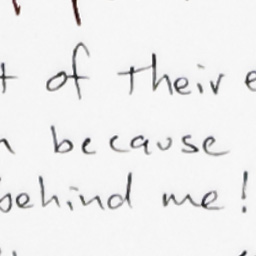 of their
because
behind me!